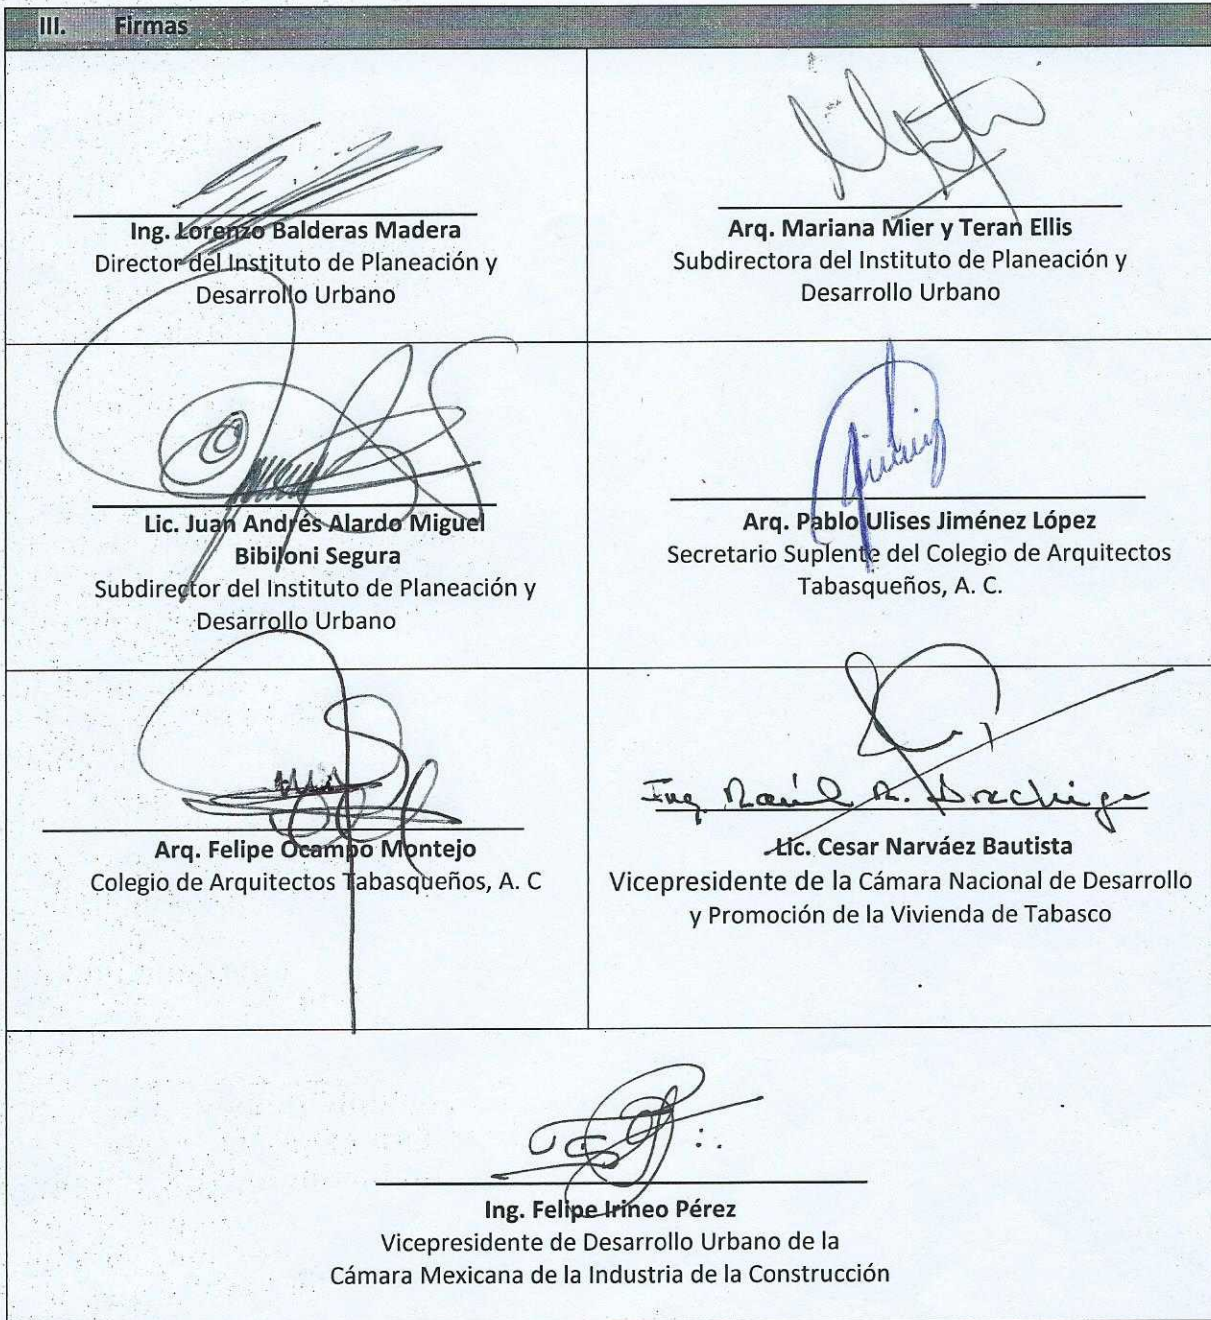 III. Firmas
Ing. Lorenzo Balderas Madera
Director del Instituto de Planeación y
Desarrollo Urbano
Arq. Mariana Mier y Teran Ellis
Subdirectora del Instituto de Planeación y
Desarrollo Urbano
Lic. Juan Andrés Alardo Miguel
Bibiloni Segura
Subdirector del Instituto de Planeación y
Desarrollo Urbano
Arq. Pablo Ulises Jiménez López
Secretario Suplente del Colegio de Arquitectos
Tabasqueños, A. C.
Arq. Felipe Ocampo Montejo
Colegio de Arquitectos Tabasqueños, A. C
Ing. Raúl
Lic. Cesar Narváez Bautista
Vicepresidente de la Cámara Nacional de Desarrollo
y Promoción de la Vivienda de Tabasco
Ing. Felipe Irineo Pérez
Vicepresidente de Desarrollo Urbano de la
Cámara Mexicana de la Industria de la Construcción